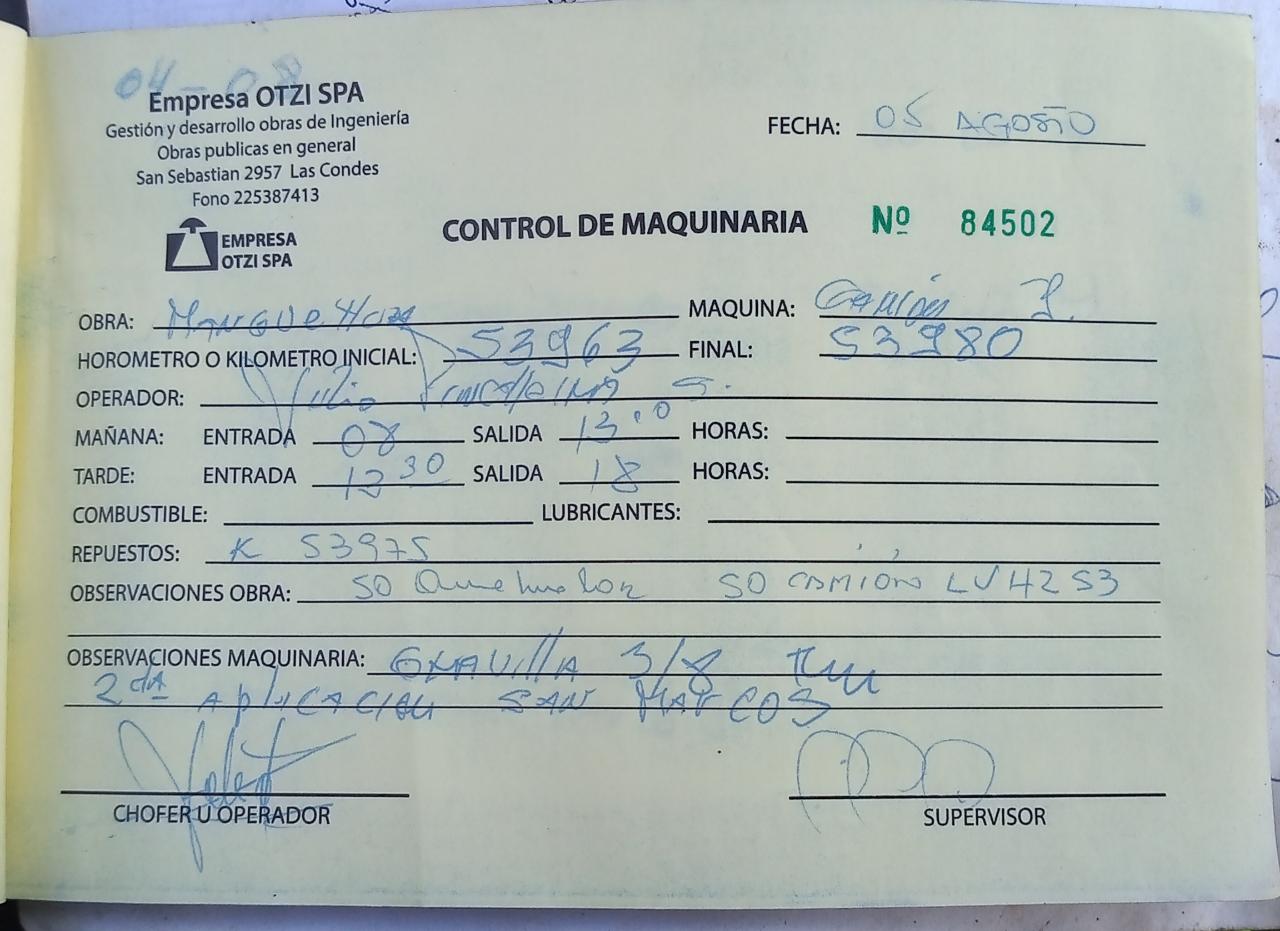 04-08
Empresa OTZI SPA
Gestión y desarrollo obras de Ingeniería
Obras publicas en general
San Sebastian 2957 Las Condes
Fono 225387413
EMPRESA
OTZI SPA
FECHA: 05 AGOSTO
CONTROL DE MAQUINARIA Nº 84502
OBRA: MAQUINA: Camión
HOROMETRO O KILOMETRO INICIAL: 53963 FINAL: 53980
OPERADOR: Julio S.
MAÑANA: ENTRADA 08 SALIDA 13.00 HORAS:
TARDE: ENTRADA SALIDA 18 HORAS:
COMBUSTIBLE: LUBRICANTES:
REPUESTOS: K 53975
OBSERVACIONES OBRA: 50 50 CAMIÓN LVHZ53
OBSERVACIONES MAQUINARIA: GRAVILLA 3/8
2da APLICACION SAN MARCOS
CHOFER U OPERADOR SUPERVISOR